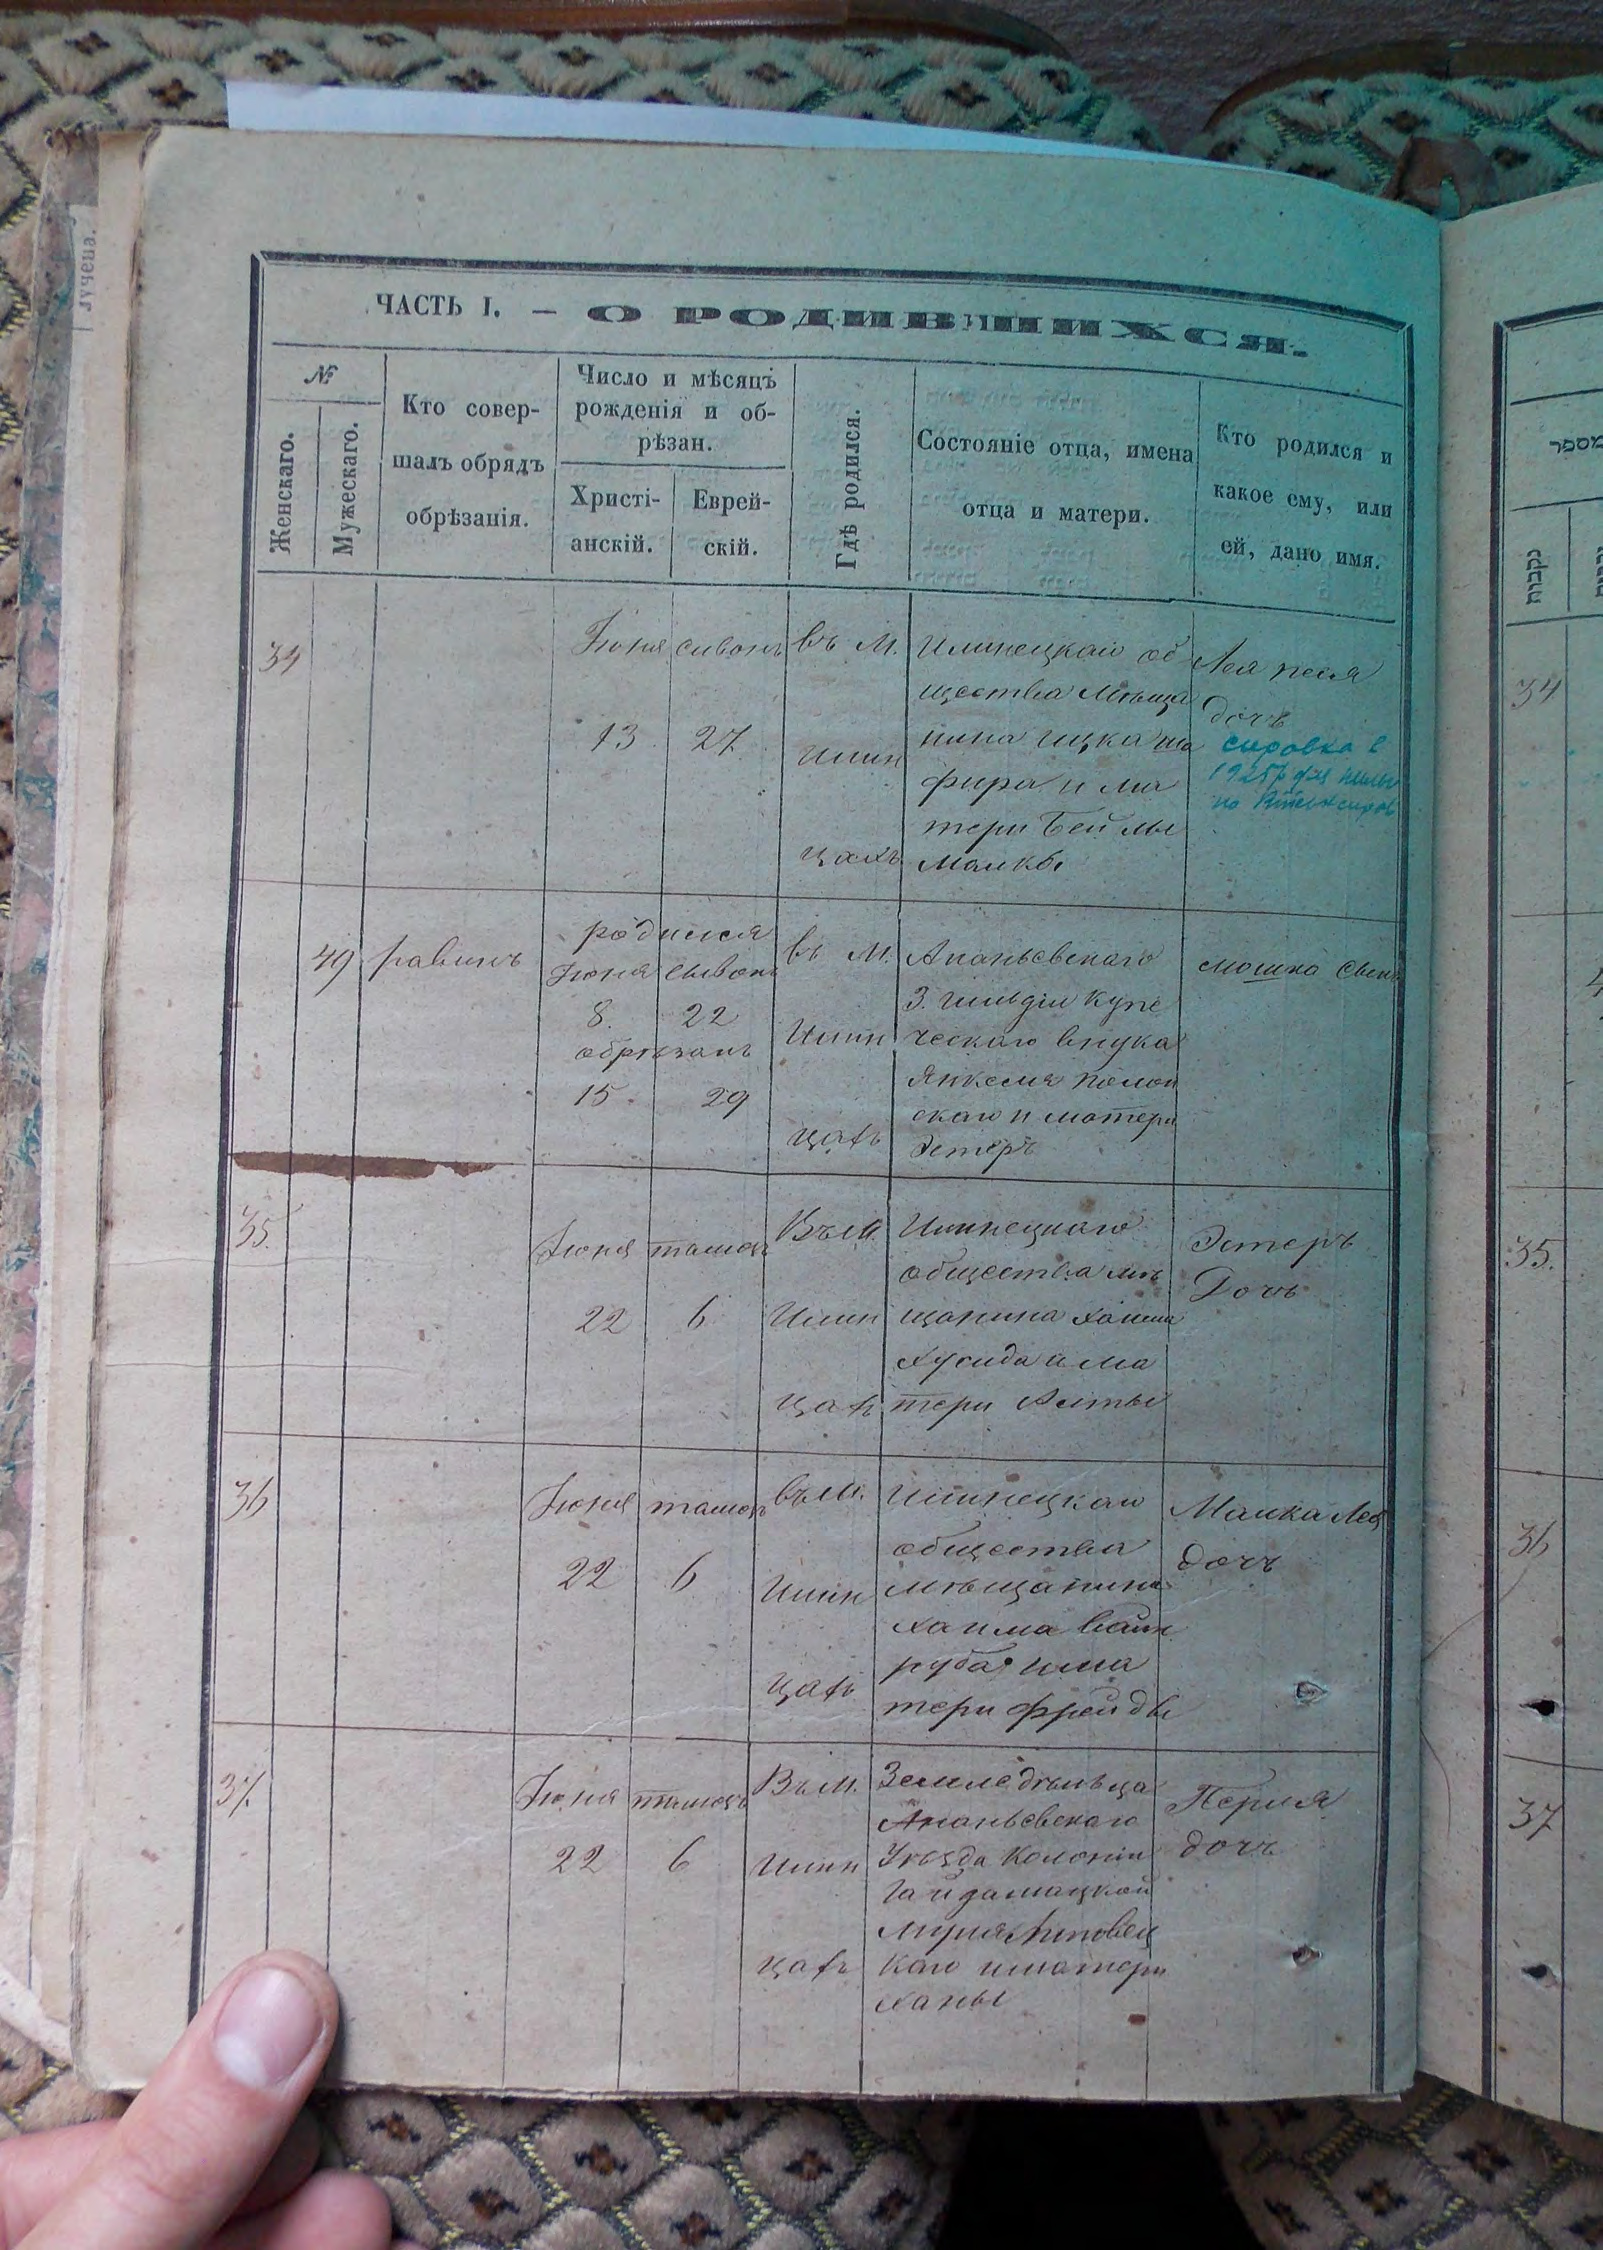 лучена.
ЧАСТЬ I. — О РОДИВШИХСЯ.
№
Женскаго.
Мужескаго.
Кто совер-
шалъ обрядъ
обрѣзанія.
Число и мѣсяцъ
рожденія и об-
рѣзан.
Христі-
анскій.
Еврей-
скій.
Гдѣ родился.
Состояніе отца, имена
отца и матери.
Кто родился и
какое ему, или
ей, дано имя.
34
Іюня
сивонъ
13
27
въ М.
Илин
цахъ
Илинецкаго об
щества мѣща
нина Ицка ша
фира и ма
тери Бейлы
Малки
Лея песя
дочь
справка в
49
равинъ
родился
Іюня
сивонъ
8.
22
обрѣзанъ
15
29
въ М.
Илин
цахъ
Ананьевскаго
3. гильдіи купе
ческаго внука
Янкеля полон
скаго и матери
Эстеръ
мошко сынъ
35.
Іюня
тамозъ
22
6
Въ М.
Илин
цахъ
Илинецкаго
общества мѣ
щанина хаима
хусида и ма
тери
Эстеръ
Дочь
36
Іюня
тамозъ
22
6
въ М.
Илин
цахъ
Илинецкаго
общества
мѣщанина
хаима вайн
руба и ма
тери Фрейды
Малка Лея
дочь
37.
Іюня
тамозъ
22
6
Въ М.
Илин
цахъ
Земледѣльца
Ананьевскаго
Уѣзда Колоніи
Гайдамацкой
Липовец
каго и матери
ханы
Перля
дочь
מספר
נקבות
34
35.
36
37